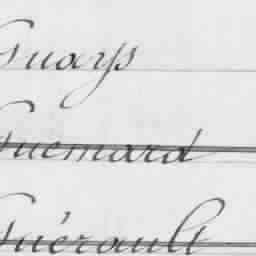 Guays
Guemard
Guérault